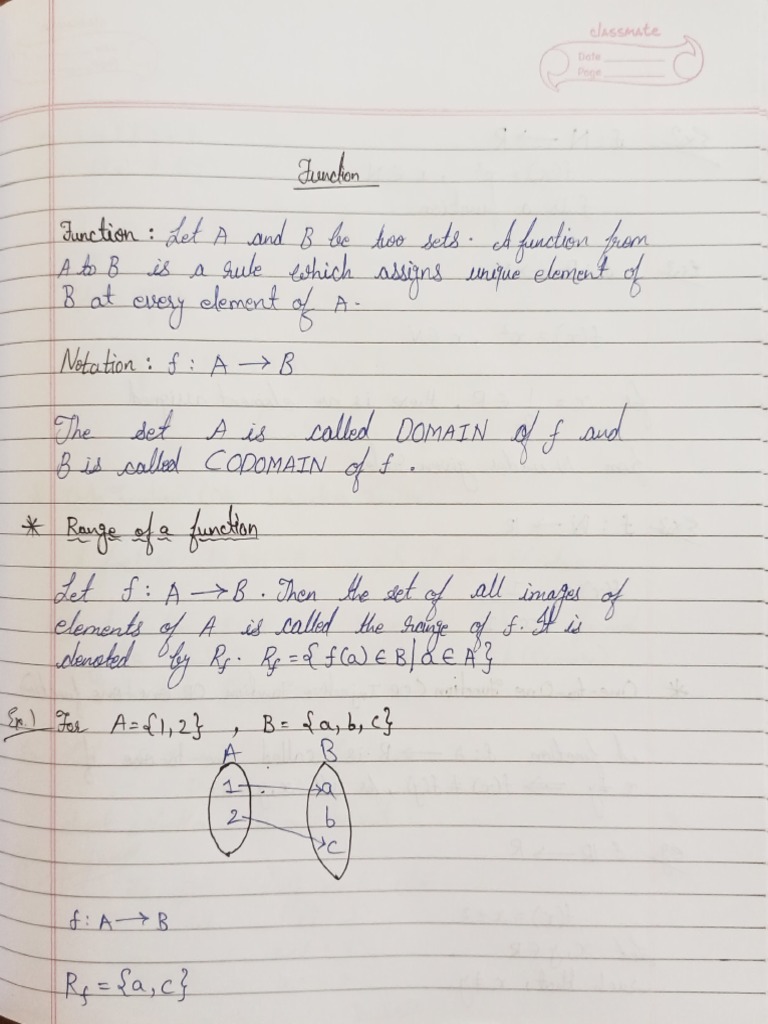 classmate
Date
Page
Function
Function : Let A and B be two sets. A function from
A to B is a rule which assigns unique element of
B at every element of A.
Notation : f : A → B
The set A is called DOMAIN of f and
B is called CODOMAIN of f .
* Range of a function
Let f : A → B . Then the set of all images of
elements of A is called the range of f. It is
denoted by Rf. Rf = { f(a) ∈ B | a ∈ A }
Ex.) For A = {1, 2} , B = {a, b, c}
A B
1 a
2 b
c
f : A → B
Rf = {a, c}